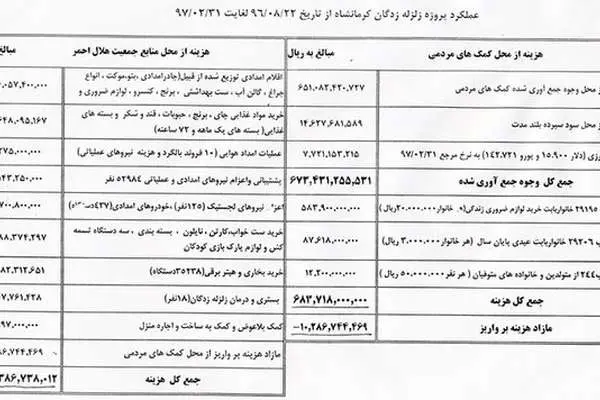 عملکرد پروژه زلزله زدگان کرمانشاه از تاریخ ۹۶/۰۸/۲۲ لغایت ۹۷/۰۲/۳۱
هزینه از محل کمک های مردمی
مبالغ به ریال
هزینه از محل منابع جمعیت هلال احمر
مبالغ
از محل وجوه جمع آوری شده کمک های مردمی
۶۵۱,۰۸۲,۴۲۰,۷۲۷
اقلام امدادی توزیع شده از قبیل(چادرامدادی،پتو،موکت ، انواع
چراغ ، گالن آب ، ست بهداشتی ، برنج ، کنسرو ، لوازم ضروری و
۰۵۷,۴۰۰,۰۰۰
از محل سود سپرده بلند مدت
۱۴,۶۲۷,۶۸۱,۵۸۹
خرید مواد غذایی چای ، برنج ، حبوبات ، قند و شکر و بسته های
غذایی( بسته های یک ماهه و ۷۲ ساعته)
۶۴۸,۰۹۵,۱۶۷
رزی (دلار ۱۵.۹۰۰ و یورو ۱۴۲.۷۲۱) به نرخ مرجع ۹۷/۰۲/۳۱
۷,۷۲۱,۱۵۳,۲۱۵
عملیات امداد هوایی (۱۰ فروند بالگرد و هزینه نیروهای عملیاتی)
۲۷۵,۰۰۰,۰۰۰
جمع کل وجوه جمع آوری شده
۶۷۳,۴۳۱,۲۵۵,۵۳۱
پشتیبانی واعزام نیروهای امدادی و عملیاتی ۵۲۹۸۴ نفر
۵۴۳,۲۵۰,۰۰۰
۲۹۱۹۵ خانواربابت خرید لوازم ضروری زندگی (ه خانوار۲۰.۰۰۰.۰۰۰ریال)
۵۸۳,۹۰۰,۰۰۰,۰۰۰
نیروهای لجستیک (۱۲۵نفر) ،خودروهای امدادی(۴۳۷دستگاه)
۷۰۰,۸۰۰,۰۰۰
۲۹۲۰۶ خانواربابت عیدی پایان سال (هر خانوار۳,۰۰۰,۰۰۰ ریال)
۸۷,۶۱۸,۰۰۰,۰۰۰
خرید ست خواب،کارتن ، نایلون ، بسته بندی ، سه دستگاه تسمه
کش و لوازم پارک بازی کودکان
۸۸,۳۷۴,۲۹۷
۲۴۴ از متولدین و خانواده های متوفیان ( هر نفر ۵۰,۰۰۰,۰۰۰ریال)
۱۲,۲۰۰,۰۰۰,۰۰۰
خرید بخاری و هیتر برقی(۳۵۲۳۸دستگاه)
۸۲,۳۱۲,۶۵۱
جمع کل هزینه
۶۸۳,۷۱۸,۰۰۰,۰۰۰
بستری و درمان زلزله زدگان(۱۸نفر)
۷,۷۶۱,۴۲۸
مازاد هزینه بر واریز
-۱۰,۲۸۶,۷۴۴,۴۶۹
کمک بلاعوض و کمک به ساخت و اجاره منزل
۹۷,۰۰۰,۰۰۰
مازاد هزینه بر واریز از محل کمک های مردمی
۸۶,۷۴۴,۴۶۹
جمع کل هزینه
۳۸۶,۷۳۸,۰۱۲